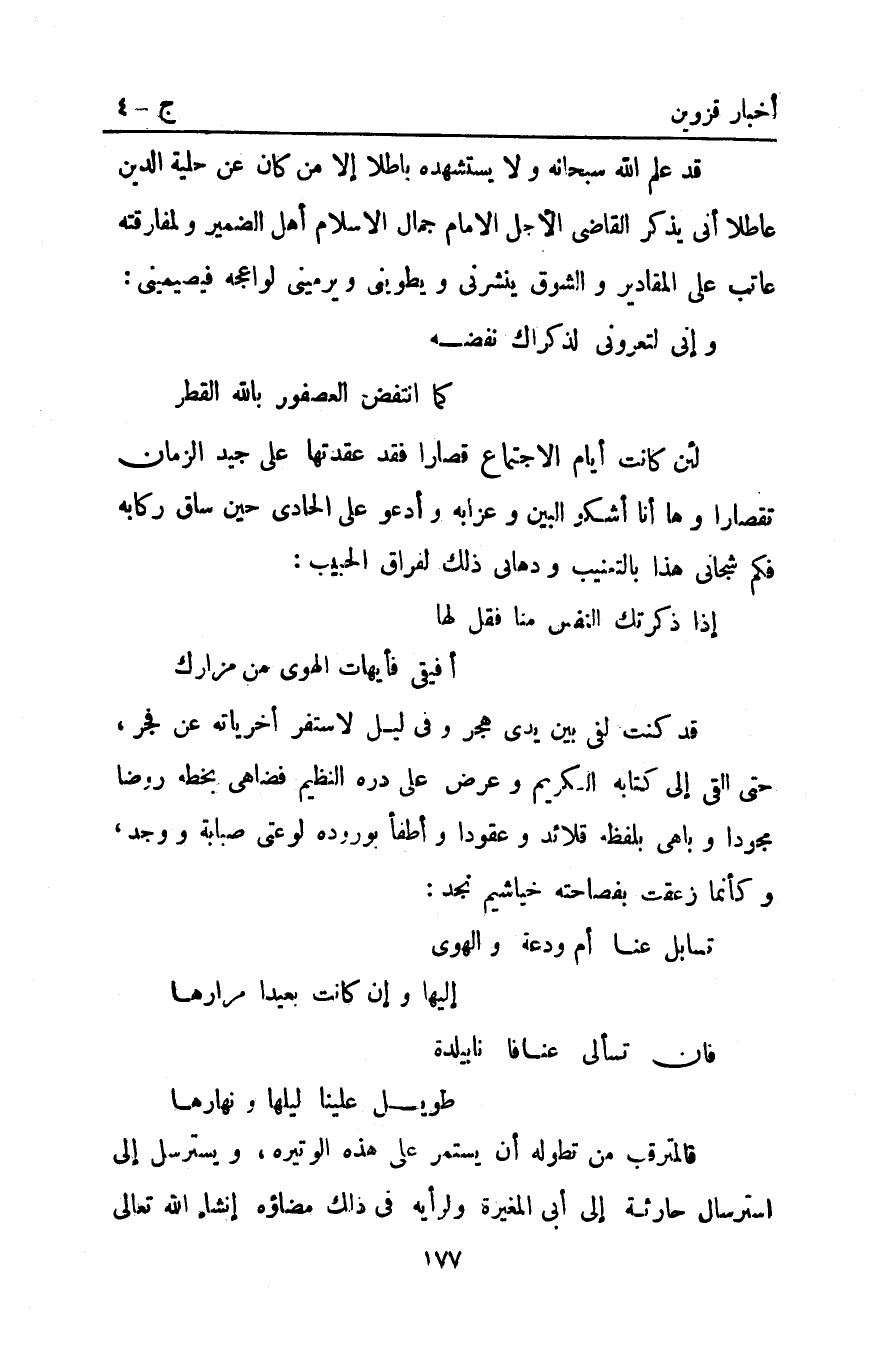 أخبار قزوين ج – ٤
قد علم الله سبحانه و لا يستشهده باطلا إلا من كان عن حلية الدين
عاطلا أنى يذكر القاضى الأجل الامام جمال الاسلام أهل الضمير و لمفارقته
عاتب على المقادير و الشوق ينشرنى و يطوينى و يرمينى لواعجه فيصيمينى :
و إنى لتعرونى لذكراك نفضــه
كما انتفض العصفور بالله القطر
لئن كانت أيام الاجتماع قصارا فقد عقدتها على جيد الزمان
تقصارا و ها أنا أشكو البين و عزابه و أدعو على الحادى حين ساق ركابه
فكم شجانى هذا بالتعنيب و دهانى ذلك لفراق الحبيب :
إذا ذكرتك النفس منا فقل لها
أفيقى فأيهات الهوى من مزارك
قد كنت لفى بين يدى هجر و فى ليل لاستفر أخرياته عن فجر ،
حتى القى إلى كتابه الكريم و عرض على دره النظيم فضاهى بخطه روضا
مجودا و باهى بلفظه قلائد و عقودا و أطفأ بوروده لوعتى صبابة و وجد ،
و كأنما زعقت بفصاحته خياشيم نجد :
تسابل عنــا أم ودعة و الهوى
إليها و إن كانت بعيدا مرارهــا
فان تسألى عنــافا نابيلدة
طويــل علينا ليلها و نهارهــا
فالمترقب من تطوله أن يستمر على هذه الوتيره ، و يسترسل إلى
استرسال حارثـة إلى أبى المغيرة ولرأيه فى ذلك مضاؤه إنشاء الله تعالى
١٧٧